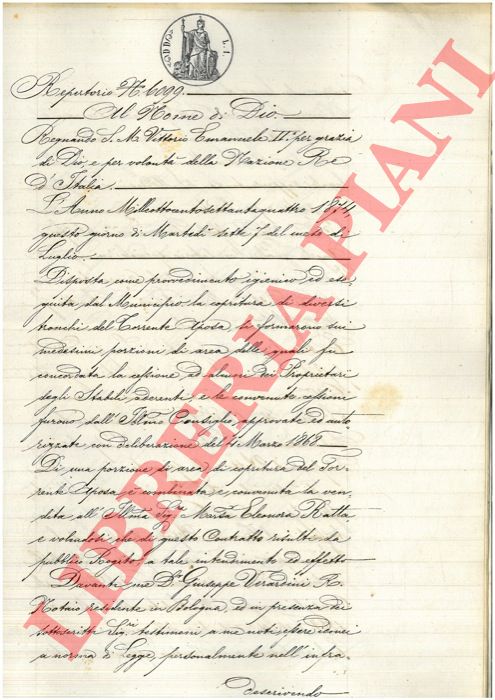 Repertorio N.° 6099.
Al Nome di Dio.
Regnando S. M. Vittorio Emanuele II.° per grazia
di Dio, e per volontà della Nazione Re
d'Italia.
L'Anno Milleottocentosettantaquattro 1874,
questo giorno di Martedì sette 7 del mese di
Luglio.
Disposta come provvedimento igienico ed ese-
guita dal Municipio la copritura di diversi
tronchi del Torrente Aposa, si formarono sui
medesimi porzioni di area delle quali fu
concordata la cessione ad alcuni dei Proprietari
degli Stabili aderenti, e le convenute cessioni
furono dall' Ill.mo Consiglio approvate ed auto
rizzate con deliberazione del 4 Marzo 1868.
Di una porzione di area di copritura del Tor-
rente Aposa è combinata e convenuta la ven-
dita all' Ill.ma Sig.ra March.a Eleonora Ratta,
e volendosi che di questo Contratto risulti da
pubblico Rogito, a tale intendimento ed effetto
Davanti me D.r Giuseppe Verardini R.
Notaio residente in Bologna, ed in presenza dei
sottoscritti Sig.ri testimoni a me noti, essere idonei
a norma di Legge, personalmente nell' infra-
descrivendo
LIBRERIA PIANI